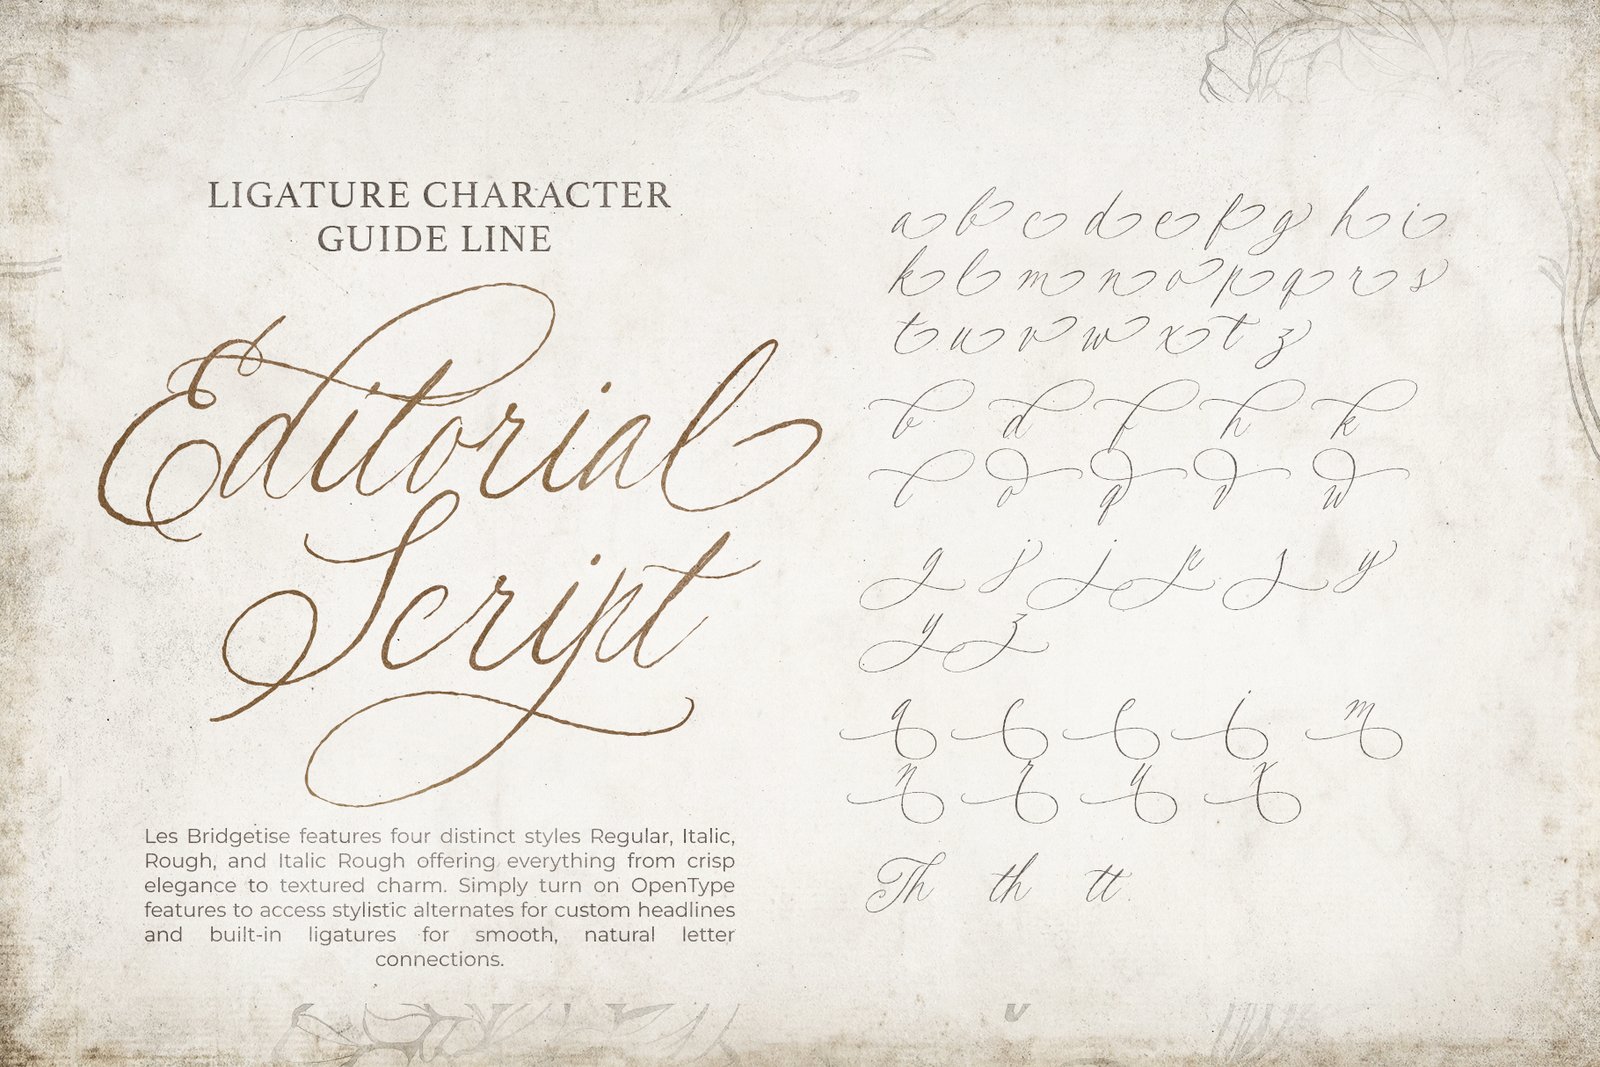 LIGATURE CHARACTER
GUIDE LINE
Editorial
Script
Les Bridgetise features four distinct styles Regular, Italic,
Rough, and Italic Rough offering everything from crisp
elegance to textured charm. Simply turn on OpenType
features to access stylistic alternates for custom headlines
and built-in ligatures for smooth, natural letter
connections.
a b c d e f g h i
k l m n o p q r s
t u v w x t z
b d f h k
l o q v w
g j j p s y
y z
a c e i m
n r u x
Th th tt